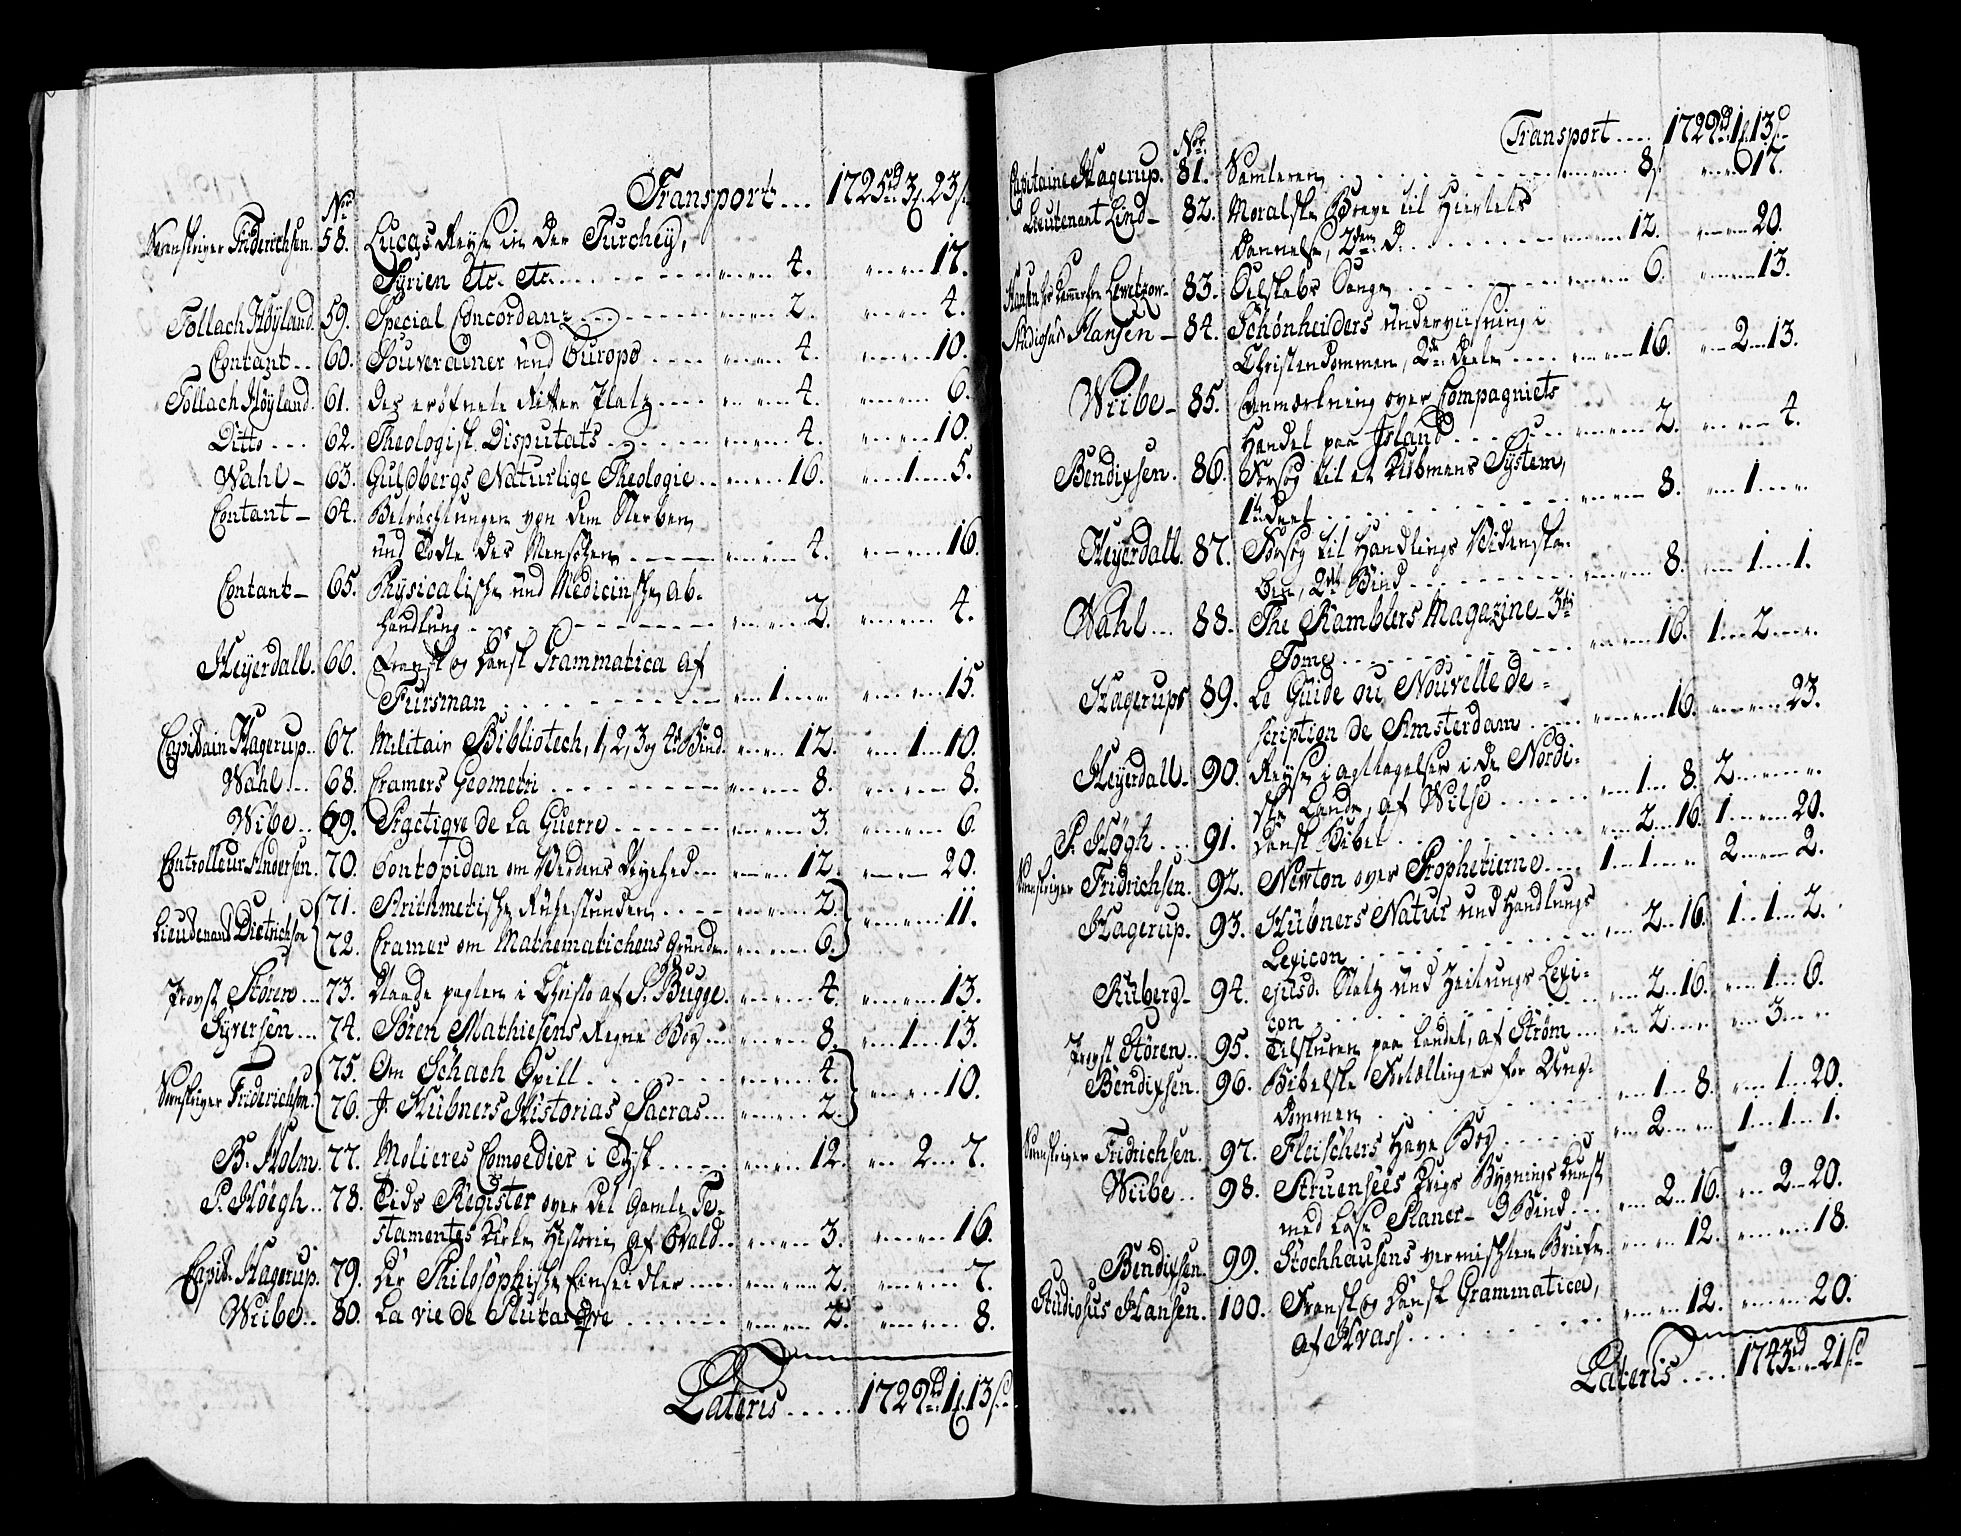 Transport... 1725rd 3 . 23 s
No
Sorenskriver Friderichsen. 58. Lucas Reyse in der Turchey,
Syrien etc. etc. 4. 17.
Tollach Høyland. 59. Special Concordanz 2. 4.
Contant.. 60. Souverainer und Europs 4. 10.
Tollach Høyland. 61. Der eröfnete Ritter Platz 4. 6.
Ditto... 62. Theologisk Disputats 4. 10.
Wahl— 63. Guldbergs Naturlige Theologie 16. 1 5.
Contant— 64. Betrachtungen von dem Sterben
und Todte des Menschen 4. 16.
Contant— 65. Physicalische und Medicinsche Ab-
handlung 2. 4.
Heyerdall. 66. Fransk og Dansk Grammatica af
Fursman 1 15.
Capitain Hagerup.. 67. Militair Bibliotech, 1, 2, 3 og 4de Bind. 12. 1 10.
Wahl... 68. Cramers Geometri 8. 8.
Wibe.. 69. Practiqve de la Guerre 3. 6.
Controlleur Andersen. 70. Pontopidan om Verdens Nyehed 12. 20.
Lieutenant Dietrichson 71. Arithmetische Ruhestunden 2. 11.
72. Cramer om Mathematichens Grunde 6.
Provst Støren... 73. Naade pagten i Christo af P. Bugge. 4. 13.
Syversen... 74. Søren Mathiesens Regne Bog 8. 1 13.
Sorenskriver Friderichsen. 75. Om Schach Spill 4. 10.
76. J. Hübners Historias Sacras 2.
B. Holm. 77. Molieres Comoedier i Tysk 12. 2 7.
P. Høegh.. 78. Tids Register over det Gamle Te-
stamentes Kirke Historie af Evald 3. 16.
Capit. Hagerup. 79. Der Philosophische Einseidler 2. 7.
Wiibe.. 80. La vie de Plutarqve 2. 8.
Lateris..... 1729rd 1 . 13 s
Transport.... 1729rd 1 . 13 s
No.
Capitaine Hagerup. 81. Samleren 8. 17.
Lieutenant Lind— 82. Moralske Breve til Hiertets
Dannelse, 2den D. 12. 20.
83. Selskabs Sange 6. 13.
Studiosus Hansen— 84. Schønheiders underviisning i
Christendommen, 2de Deele 16. 2 13.
Wiibe— 85. Anmærkning over Compagniets
Handel paa Island 2. 4.
Bendixsen. 86. Forsøg til et Kiøbmans System,
1te Deel 8. 1
Heyerdall. 87. Forsøg til Handlings Videnska-
ben, 2det Bind 8. 1 1.
Wahl... 88. The Ramblers Magazine 3die
Tome 16. 1 2
Hagerups 89. Le Guide ou Nouvelle de-
scription de Amsterdam 16. 23.
Heyerdall. 90. Reyse iagttagelser i de Nordi-
ske Lande, af Wilse 1 8. 2
P. Høgh... 91. Dansk Bibel 2 16. 1 20.
Sorenskriver Fridrichsen. 92. Newton over Prophetierne 1 1 2 2.
Hagerup. 93. Hübners Natur und Handlungs
Lexicon 2 16. 1 1 2.
Ruberg— 94. ejusd. Staty und Zeitungs Lexi-
con 2 16. 1 6.
Provst Støren.. 95. Tilskuren paa Landet, af Strøm 2 3
Bendixsen. 96. Bibelske Fortællinger for Ung-
dommen 1 8. 1 20.
Sorenskriver Fridrichsen. 97. Fleischers Have Bog 2 1 1 1.
Wiibe.. 98. Struensees Krigs Bygnings Kunst
med løse Planer— 3 Bind 2 16. 2 20.
Bendixsen. 99. Stochhausens vermischten Briefe. 12. 18.
Studiosus Hansen. 100. Fransk og Dansk Grammatica,
af Hvass 12. 20.
Lateris.... 1743rd 21 s